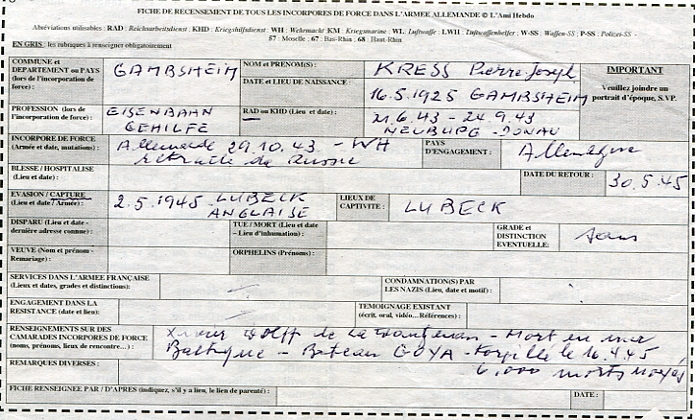 FICHE DE RECENSEMENT DE TOUS LES INCORPORES DE FORCE DANS L'ARMEE ALLEMANDE © L'Ami Hebdo
Abréviations utilisables : RAD : Reichsarbeitsdienst ; KHD : Kriegshilfsdienst ; WH : Wehrmacht KM : Kriegsmarine ; WL : Luftwaffe ; LWH : Luftwaffenhelfer ; W-SS : Waffen-SS ; P-SS : Polizei-SS -
57 : Moselle ; 67 : Bas-Rhin ; 68 : Haut-Rhin
EN GRIS : les rubriques à renseigner obligatoirement
COMMUNE et DEPARTEMENT ou PAYS (lors de l'incorporation de force) :
GAMBSHEIM
NOM et PRENOM(S) :
KRESS Pierre Joseph
DATE et LIEU DE NAISSANCE :
16.5.1925 GAMBSHEIM
IMPORTANT
Veuillez joindre un portrait d'époque, S.VP.
PROFESSION (lors de l'incorporation de force) :
EISENBAHN
GEHILFE
RAD ou KHD (Lieu et date) :
21.6.43 - 24.9.43
NEUBURG - DONAU
INCORPORE DE FORCE (Armée et date, mutations) :
Allemande 29.10.43 - WH
retraite de Russie
PAYS D'ENGAGEMENT :
Allemagne
BLESSE / HOSPITALISE (Lieu et date) :
DATE DU RETOUR :
30.5.45
EVASION / CAPTURE (Lieu et date / Armée) :
2.5.1945 LUBECK
ANGLAISE
LIEUX DE CAPTIVITE :
LUBECK
DISPARU (Lieu et date - dernière adresse connue) :
TUE / MORT (Lieu et date – Lieu d'inhumation) :
GRADE et DISTINCTION EVENTUELLE :
sans
VEUVE (Nom et prénom - Remariage) :
ORPHELINS (Prénoms) :
SERVICES DANS L'ARMEE FRANÇAISE (Lieux et dates, grades et distinctions) :
CONDAMNATION(S) PAR LES NAZIS (Lieu, date et motif) :
ENGAGEMENT DANS LA RESISTANCE (date et lieu) :
TEMOIGNAGE EXISTANT (écrit, oral, vidéo... Références) :
RENSEIGNEMENTS SUR DES CAMARADES INCORPORES DE FORCE (noms, prénoms, lieux de rencontre...) :
Wolff de La Wantzenau - Mort en mer
Baltique - Bateau GOYA - Torpillé le 16.4.45
6.000 morts noyés
REMARQUES DIVERSES :
FICHE RENSEIGNEE PAR / D'APRES (indiquez, s'il y a lieu, le lien de parenté) :
DATE :